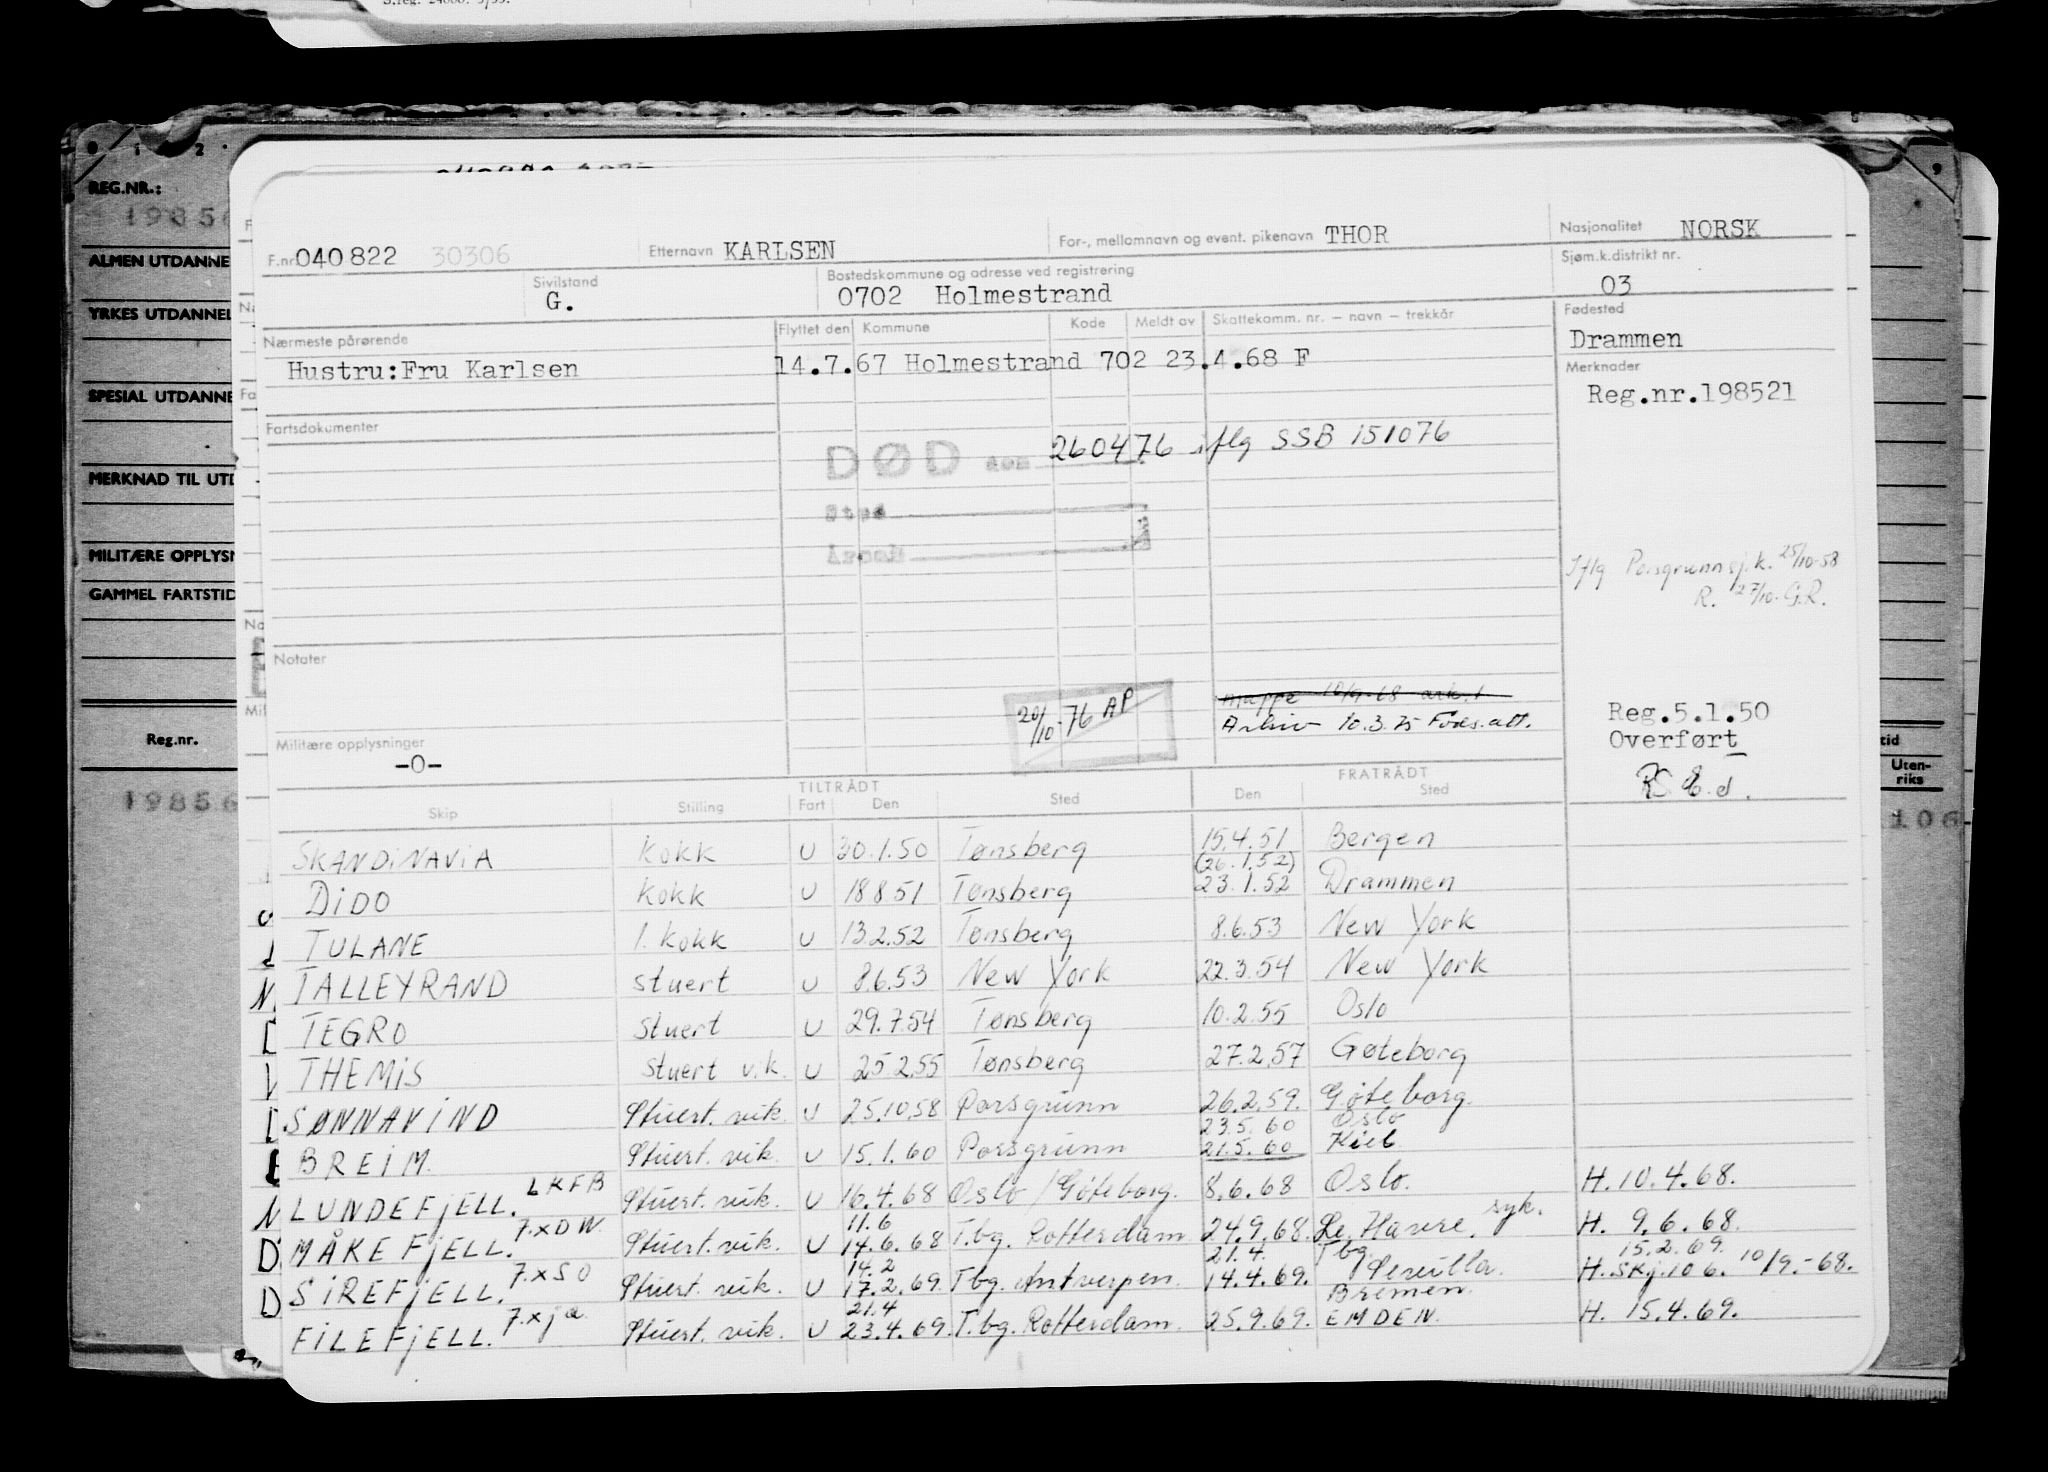 S.reg. 24000. 3/55.
REG.NR.:
ALMEN UTDANNE
YRKES UTDANNEL
SPESIAL UTDANNE
MERKNAD TIL UTD
MILITÆRE OPPLYSN
GAMMEL FARTSTID
Reg.nr.
19856
F.nr. 040822 30306 Etternavn KARLSEN For-, mellomnavn og event. pikenavn THOR Nasjonalitet NORSK
Sivilstand G. Bostedskommune og adresse ved registrering 0702 Holmestrand Sjøm.k.distrikt nr. 03
Nærmeste pårørende Flyttet den Kommune Kode Meldt av Skattekomm. nr. – navn – trekkår Fødested
Hustru:Fru Karlsen 14.7.67 Holmestrand 702 23.4.68 F Drammen
Merknader
Reg.nr.198521
Fartsdokumenter
DØD den 260476 iflg SSB 151076
Sted
Årsak
Iflg Porsgrunn sj.k. 25/10-58
R. 27/10- G.R.
Notater
Mappe 10/9-68 ark.1
20/10-76 AP Arkiv 10.3.75 Føds.att.
Reg.5.1.50
Overført
Militære opplysninger
-0-
TILTRÅDT FRATRÅDT
Skip Stilling Fart Den Sted Den Sted
SKANDiNAViA Kokk U 30.1.50 Tønsberg 15.4.51 Bergen
(26.1.52)
DiDO Kokk U 18 8 51 Tønsberg 23.1.52 Drammen
TULANE 1. Kokk U 13.2.52 Tønsberg 8.6.53 New York
TALLEYRAND stuert U 8.6.53 New York 22.3.54 New York
TEGRO Stuert U 29.7.54 Tønsberg 10.2.55 Oslo
THEMiS Stuert v.k. U 25 2.55 Tønsberg 27.2.57 Gøteborg
SØNNAViND Stuert. vik. U 25.10.58 Porsgrunn 26.2.59. Göteborg.
23.5.60 Oslo
BREiM. Stuert. vik. U 15.1.60 Porsgrunn 21.5.60 Kiel
LUNDEFjELL. LKFB Stuert. vik. U 16.4.68 Oslo / Göteborg. 8.6.68 Oslo. H. 10.4.68.
11.6 syk.
MÅKEFjELL. 7.xDW. Stuert. vik. U 14.6.68 T.bg. Rotterdam 24.9.68. Le Havre. H. 9.6.68.
14.2 21.4. Tbg. 15.2.69.
SiREFjELL. 7.xSO Stuert. vik. U 17.2.69. Tbg. Antwerpen. 14.4.69. Sevilla. H. Skj.106. 10/9.-68.
21.4 Bremen.
FiLEFjELL. 7.xja Stuert. vik. U 23.4.69. T.bg. Rotterdam. 25.9.69. EMDEN. H. 15.4.69.
tid
Uten-
riks
106